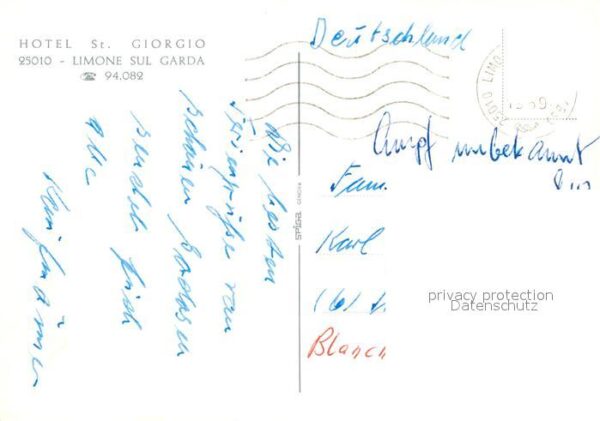 HOTEL St. GIORGIO
25010 - LIMONE SUL GARDA
☎ 94.082
Die besten
Feriengrüße von
schönen
sendet Euch
alle
Deutschland
25010 LIMO
Empf unbekannt
Fam.
Karl
Blanch
spiga GENOVA
privacy protection
Datenschutz